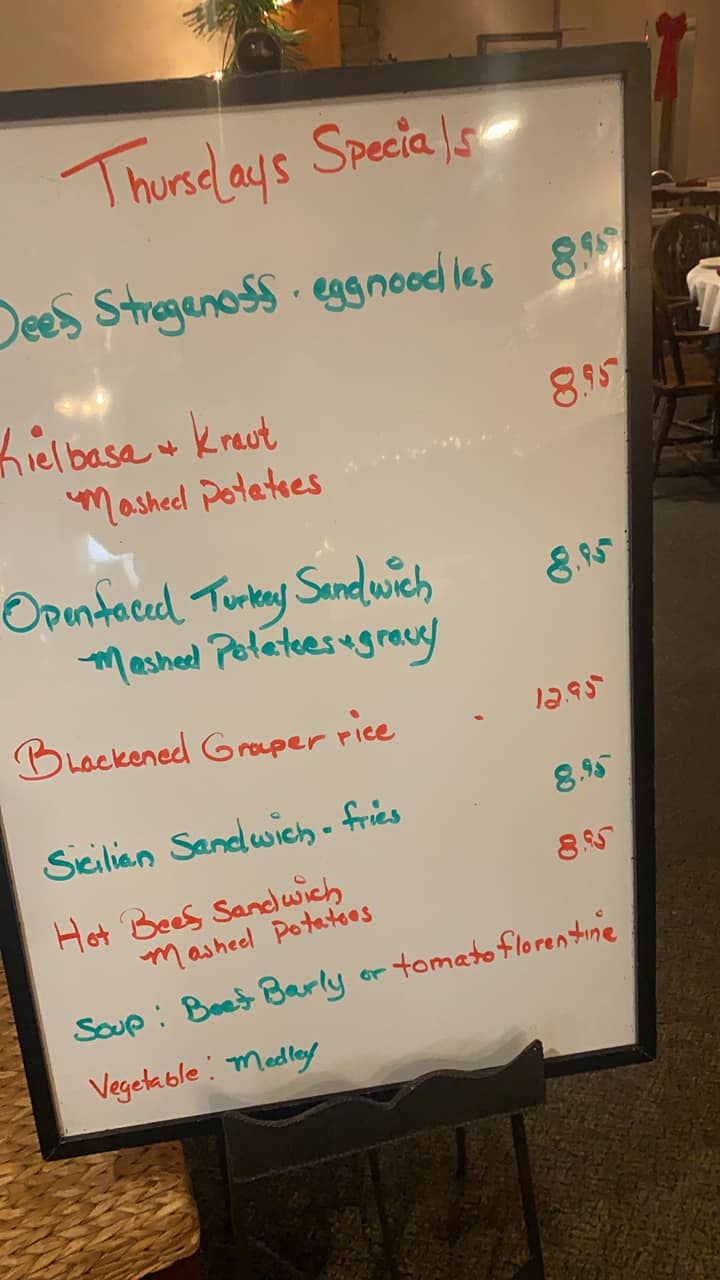 Thursdays Specials
Beef Stroganoff . eggnoodles 8.95
Kielbasa + Kraut 8.95
Mashed Potatoes
Openfaced Turkey Sandwich 8.95
Mashed Potatoes + gravy
Blackened Grouper rice - 12.95
Sicilian Sandwich - fries 8.95
Hot Beef Sandwich 8.95
Mashed Potatoes
Soup: Beef Barly or tomato florentine
Vegetable: Medley